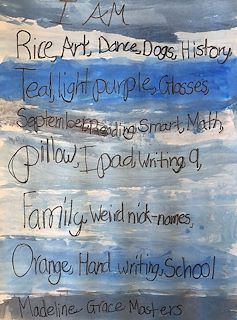 I AM
Rice, Art, Dance, Dogs, History
Teal, light purple, Glasses,
September, Reading, Smart, Math,
pillow, I pad, writing, 9,
Family, Weird nick-names,
Orange, Hand writing, School
Madeline Grace Masters